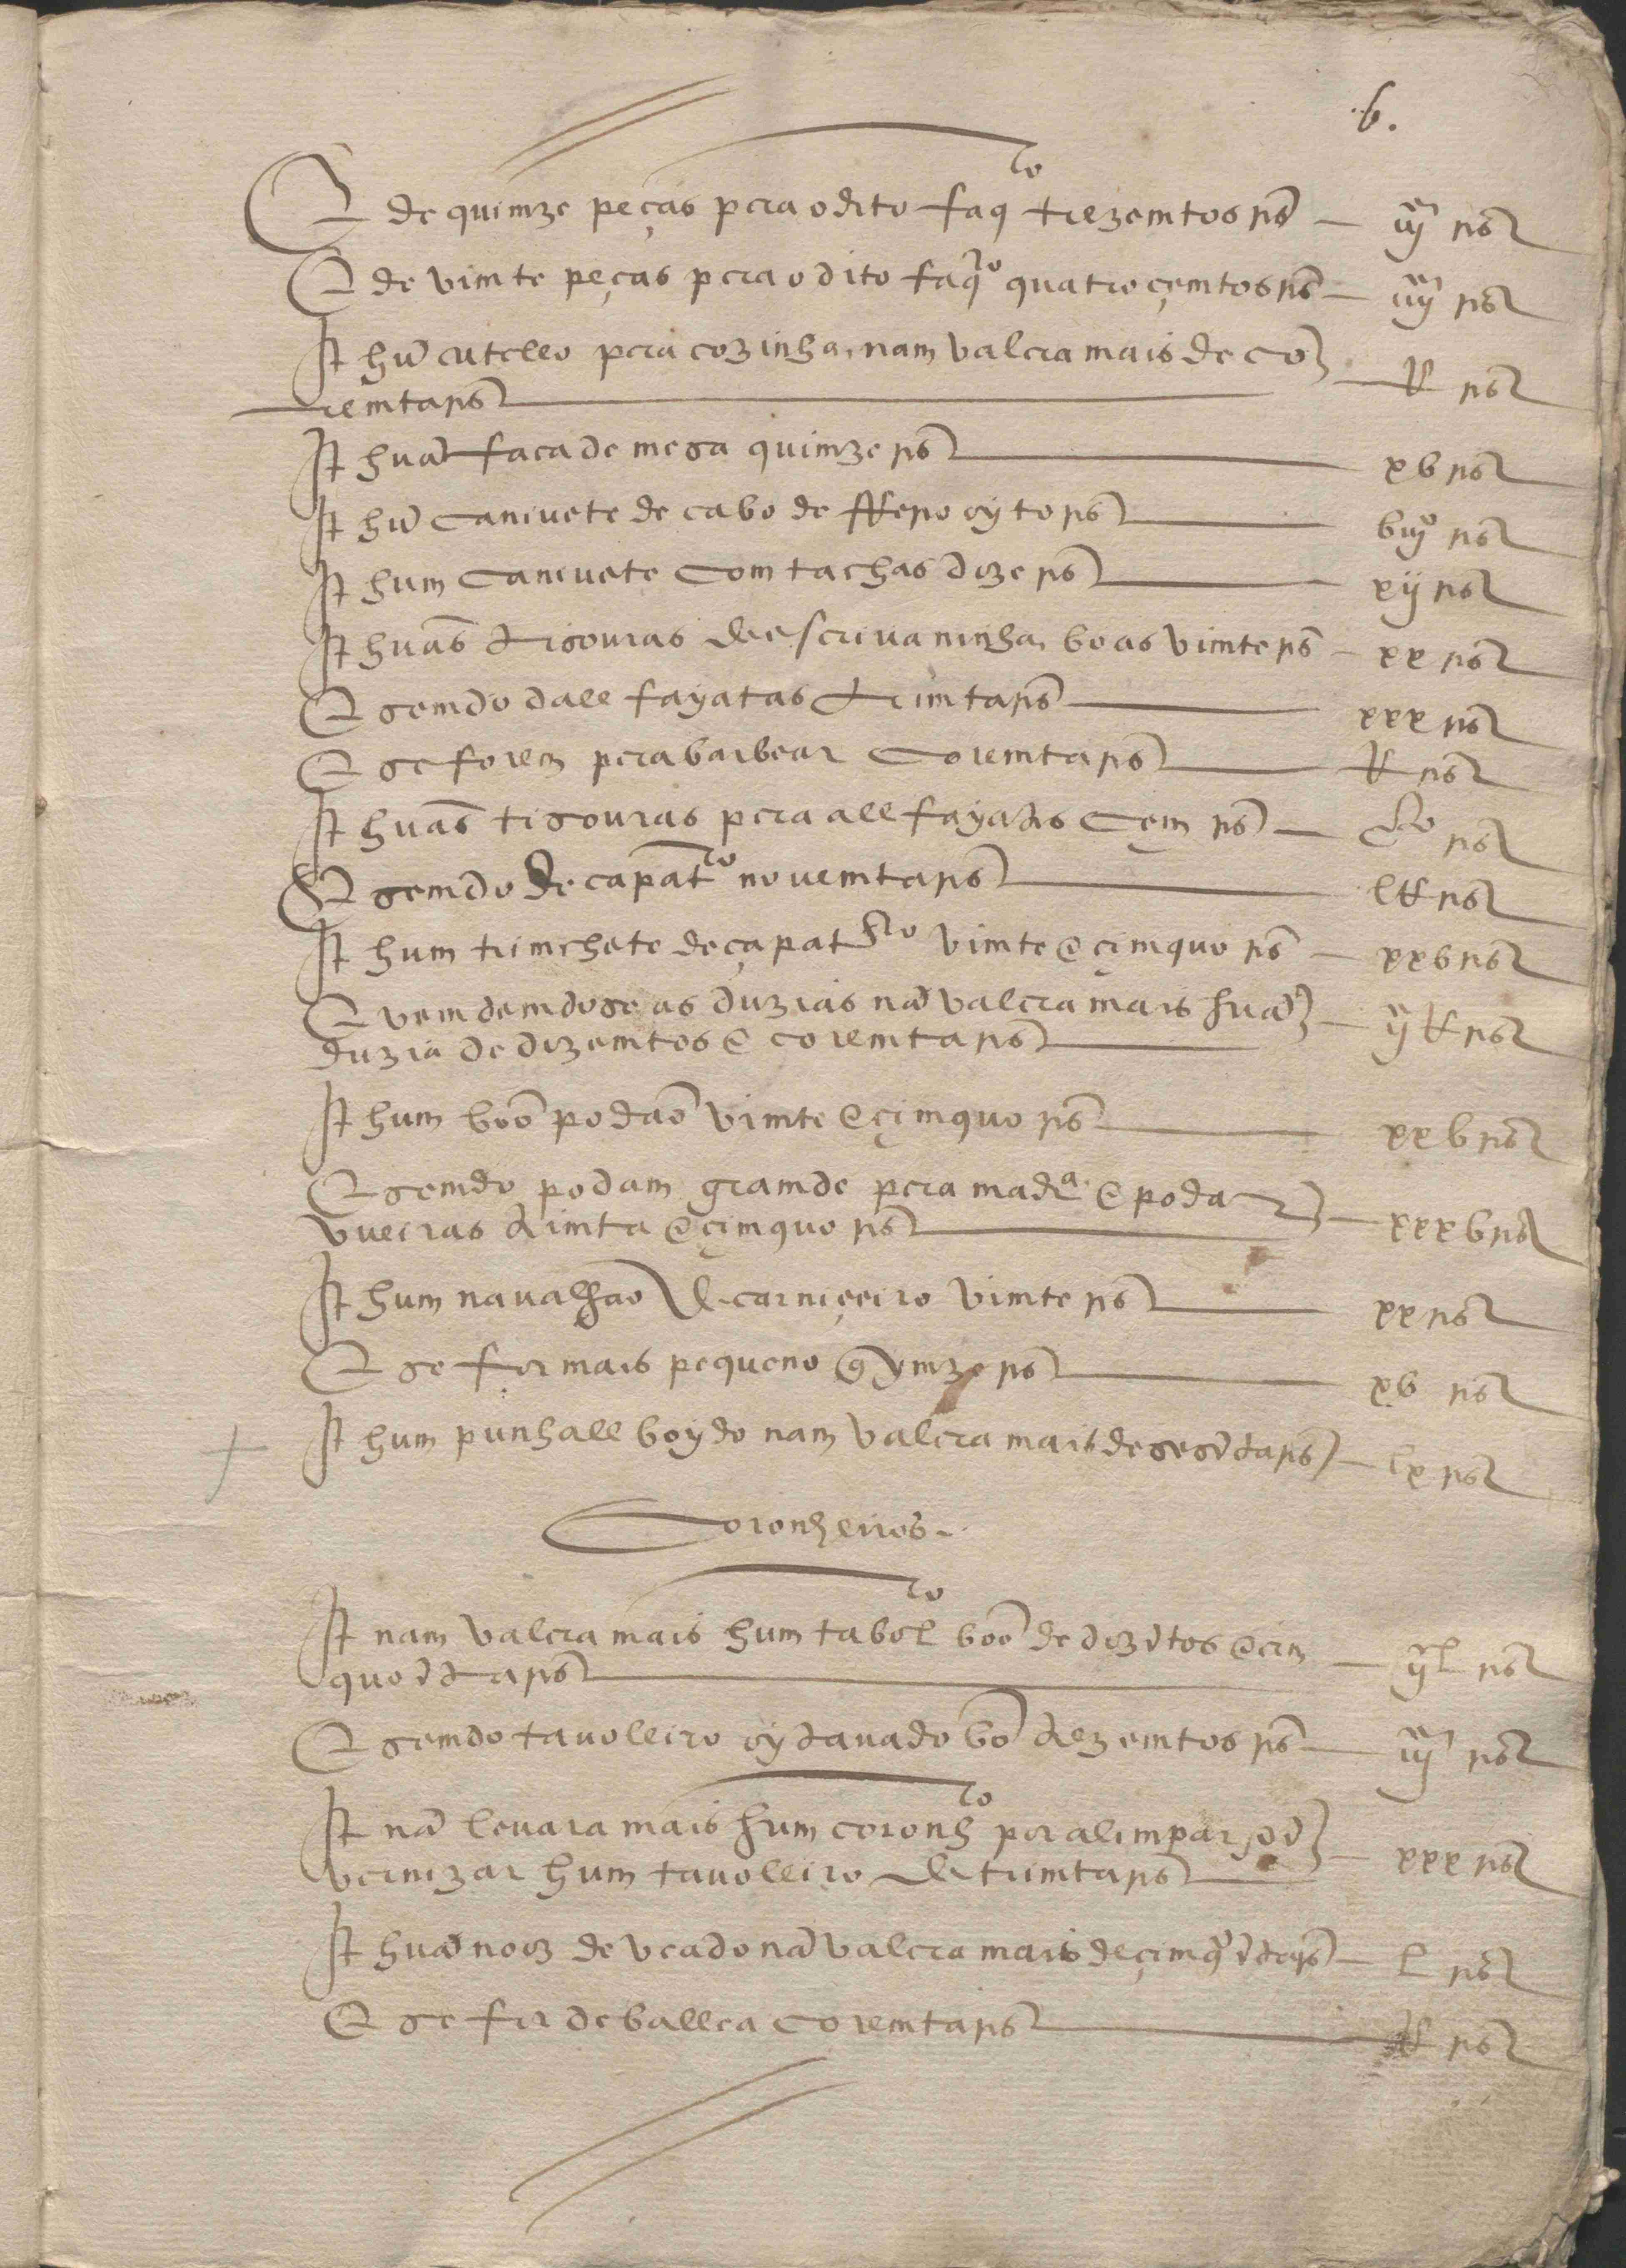 .b.
E de quimze peças pera o dito faqro trezemtos rs — iijc rs
E de vimte peças pera o dito faqro quatroçemtos rs — iiijc rs
It hũ cutello pera cozinha, nam valera mais de co
remta rs — R rs
It huã faca de mesa quimze rs — xb rs
It hũ caniuete de cabo de ffeno oyto rs — biijo rs
It hum caniuete com tachas doze rs — xij rs
It huãs tisouras de escriuaninha, boas vimte rs — xx rs
E semdo dallfayatas trimta rs — xxx rs
E se forem pera barbear coremta rs — R rs
It huãs tisouras pera allfayates Cem rs — cto rs
E semdo de capatro nouemta rs — lR rs
It hum trimchete de çapatro vimte e çimquo rs — xxb rs
E vemdemdose as duzias nã valera mais huã
duzia de dozemtos e coremta rs — ijc R rs
It hum boõ podaõ vimte e çimquo rs — xxb rs
E semdo podam gramde pera madra e podar
vueiras trimta e çimquo rs — xxxb rs
It hum naualhaõ de carniçeiro vimte rs — xx rs
E se for mais pequeno qymze rs — xb rs
It hum punhall boydo nam valera mais de sesẽta rs — lx rs
Coronheiros.
It nam valera mais hum tabolro boõ de dozẽtos e cim
quoẽta rs — ijc l rs
E semdo tauoleiro oytauado bõ trezemtos rs — iijc rs
It nã leuara mais hum coronhro por alimpar, e ẽ
vernizar hum tauolleiro de trimta rs — xxx rs
It huã nooz de veado nã valera mais de çimqoẽta rs — l rs
E se for de ballea coremta rs — R rs